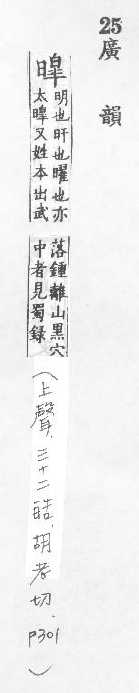 25
廣韻
暤明也旰也曜也亦
太暤又姓本出武
落鍾離山黑穴
中者見蜀録
（上聲．三十二皓．胡老切．p301）